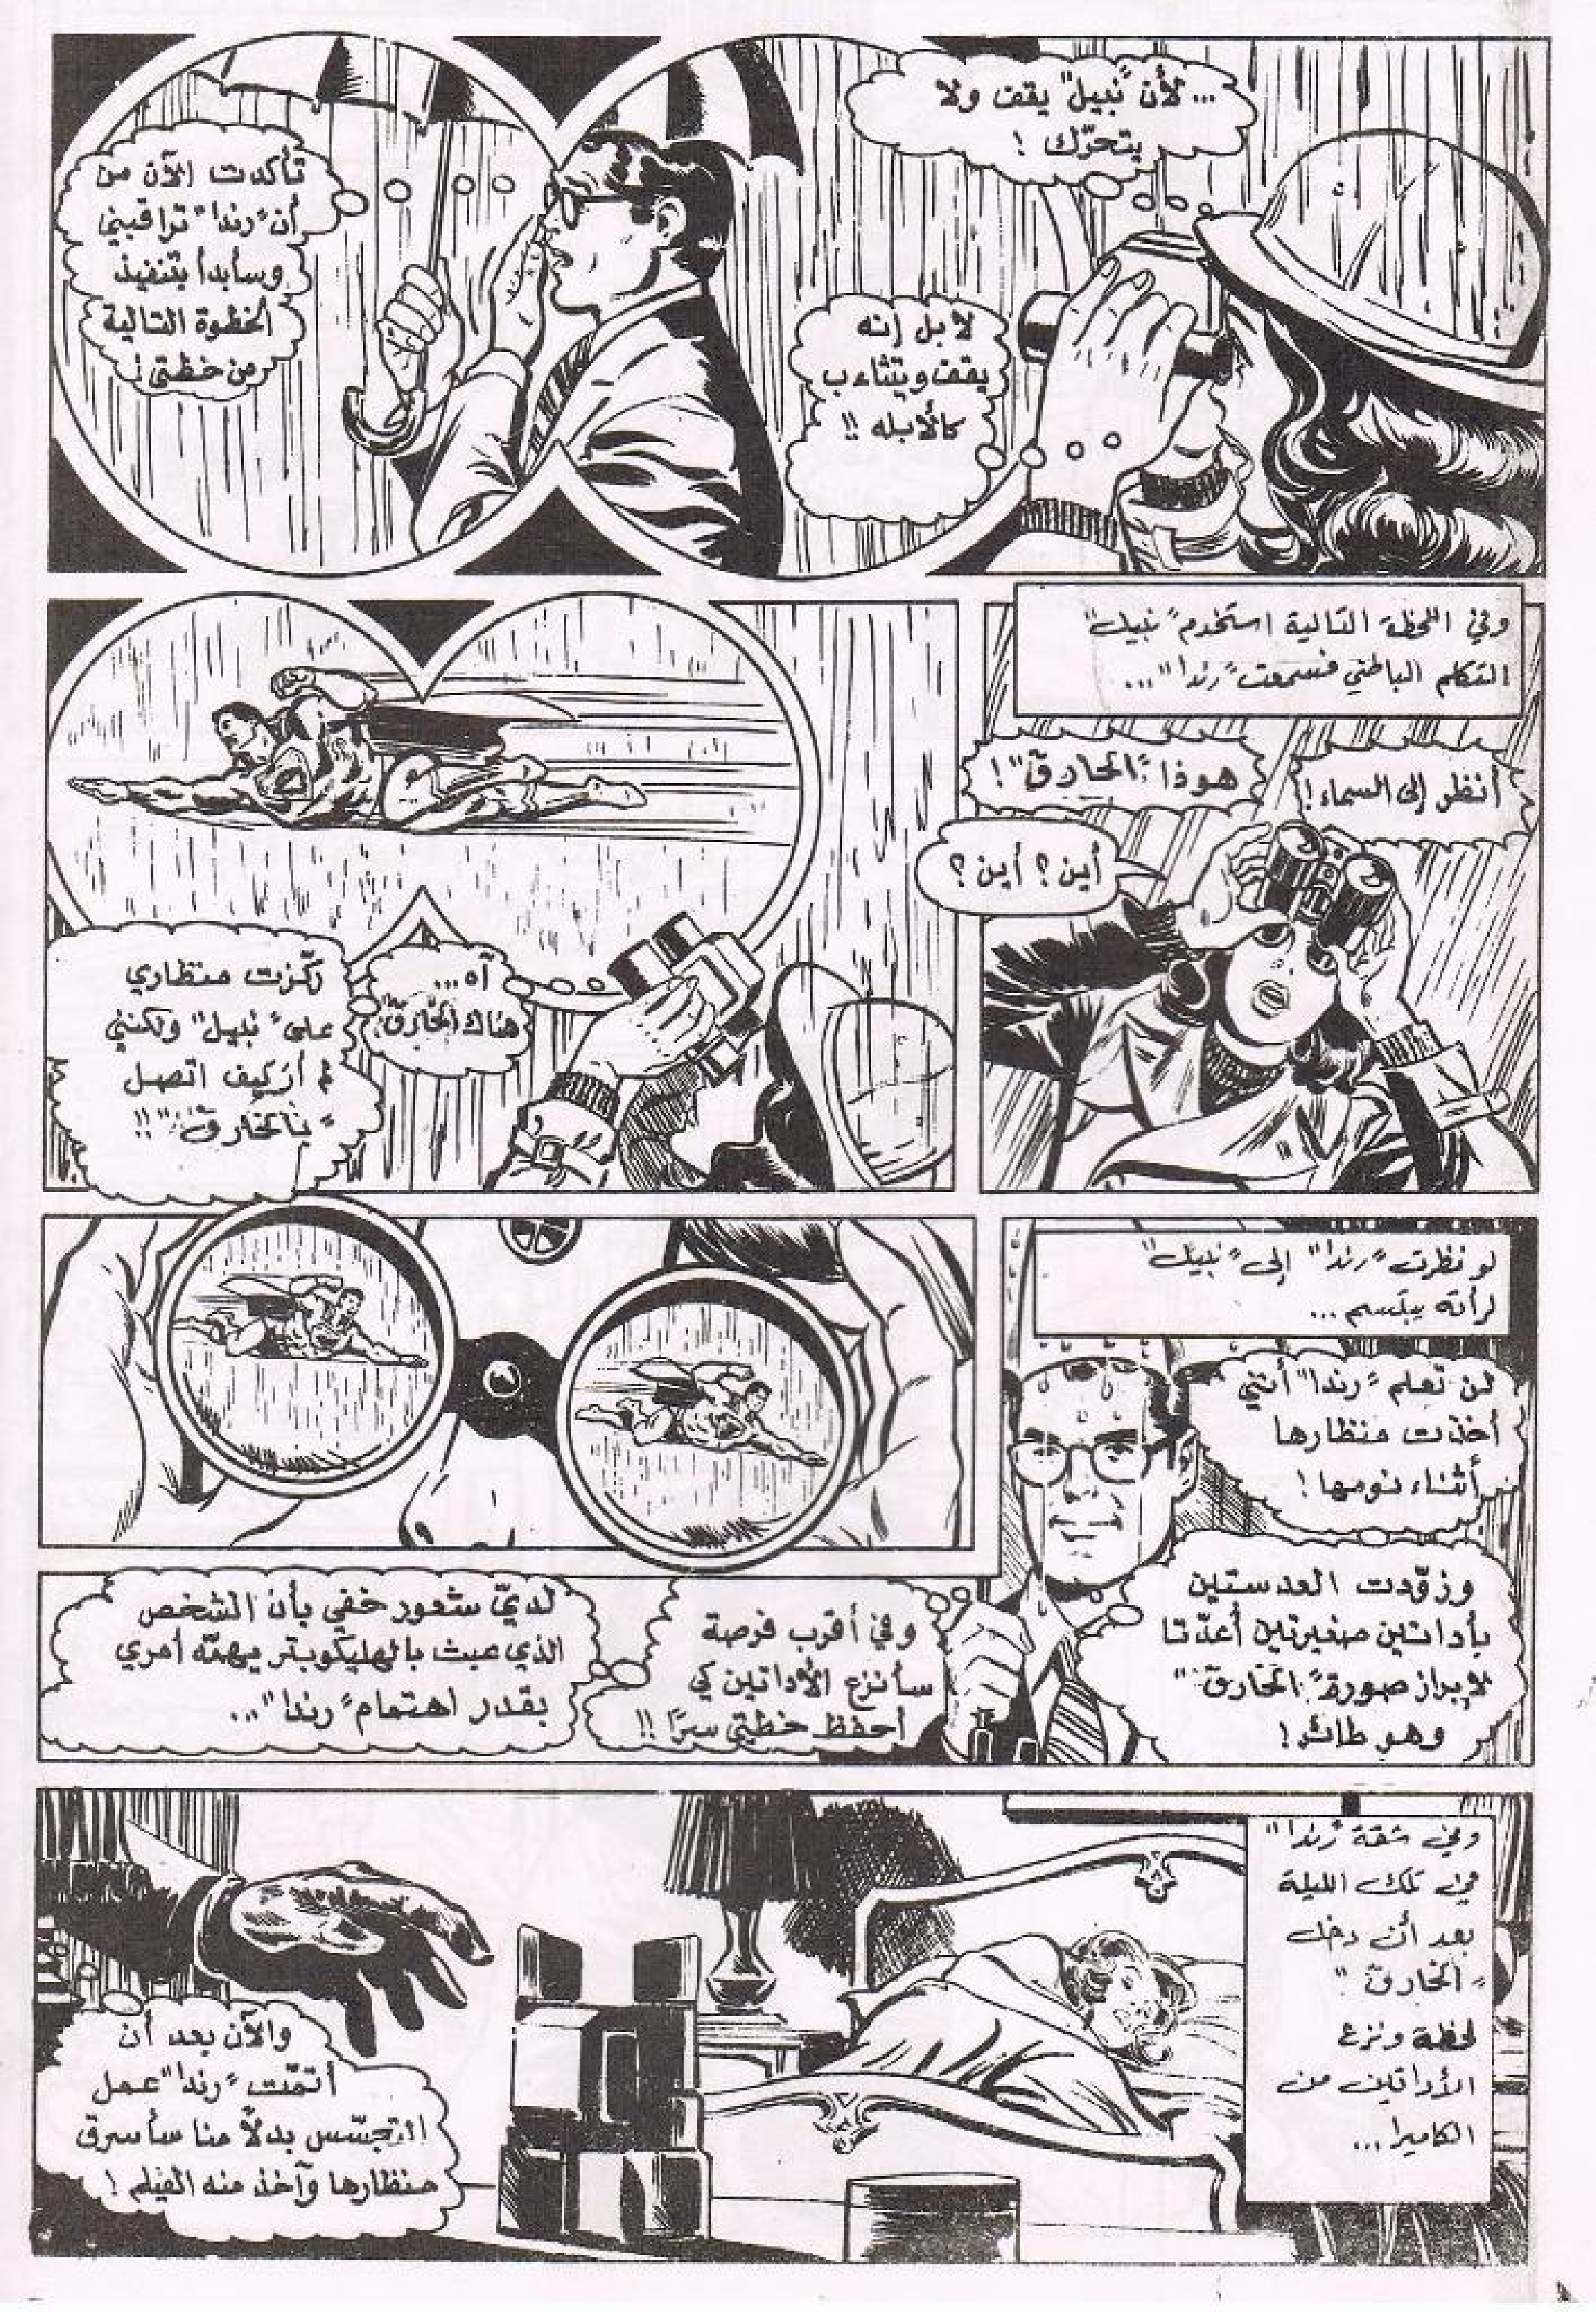 ...لأن "نبيل" يقف ولا
يتحرّك !
لا بل إنه
يقف ويتثاءب
كالأبله !!
تأكدت الآن من
أن "رندا" تراقبني
وسأبدأ بتنفيذ
الخطوة التالية
من خطتي !
وفي اللحظة التالية استخدم "نبيل"
التكلم الباطني فسمعت "رندا"...
أنظر إلى السماء !
هوذا "الخارق" !
أين ؟ أين ؟
آه...
هناك "الخارق" !
ركّزت منظاري
على "نبيل" ولكنني
لم أرَ كيف اتصل
"بالخارق" !!
لو نظرت "رندا" إلى "نبيل"
لرأته يبتسم ...
لن تعلم "رندا" أنني
أخذت منظارها
أثناء نومها !
وزوّدت العدستين
بأداتين صغيرتين أعدّتا
لإبراز صورة "الخارق"
وهو طائر !
وفي أقرب فرصة
سأنزع الأداتين كي
أحفظ خطتي سرًا !!
لديّ شعور خفي بأن الشخص
الذي عبث بالهليكوبتر يهمّه أمري
بقدر اهتمام "رندا"...
وفي شقة "رندا"
في تلك الليلة
بعد أن دخل
"الخارق"
لحظة ونزع
الأداتين من
الكاميرا...
والآن بعد أن
أتمّت "رندا" عمل
التجسّس بدلاً منا سأسرق
منظارها وآخذ منه الفيلم !